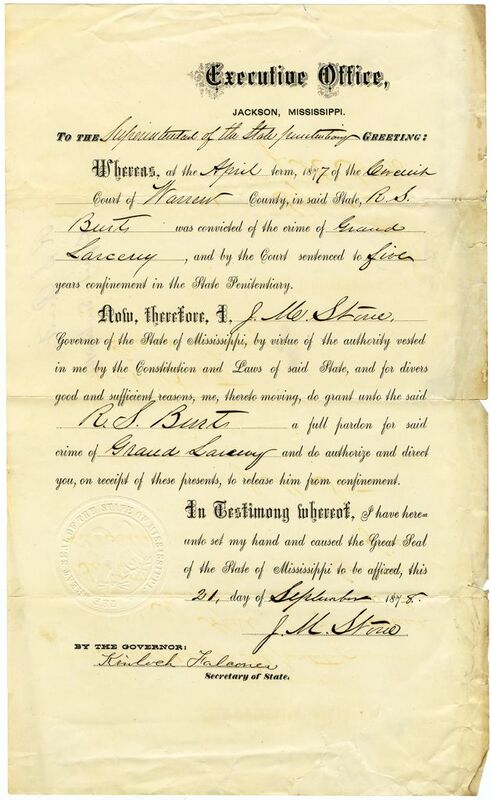 Executive Office,
JACKSON, MISSISSIPPI.
TO THE Superintendent of the State penitentiary GREETING:
Whereas, at the April term, 1877 of the Circuit
Court of Warren County, in said State, R. S.
Burts was convicted of the crime of Grand
Larceny, and by the Court sentenced to five
years confinement in the State Penitentiary.
Now, therefore, I, J. M. Stone,
Governor of the State of Mississippi, by virtue of the authority vested
in me by the Constitution and Laws of said State, and for divers
good and sufficient reasons, me, thereto moving, do grant unto the said
R. S. Burts a full pardon for said
crime of Grand Larceny and do authorize and direct
you, on receipt of these presents, to release him from confinement.
In Testimony whereof, I have here=
unto set my hand and caused the Great Seal
of the State of Mississippi to be affixed, this
21, day of September 1878.
J. M. Stone
BY THE GOVERNOR:
Kinloch Falconer
Secretary of State.
THE GREAT SEAL OF THE STATE OF MISSISSIPPI